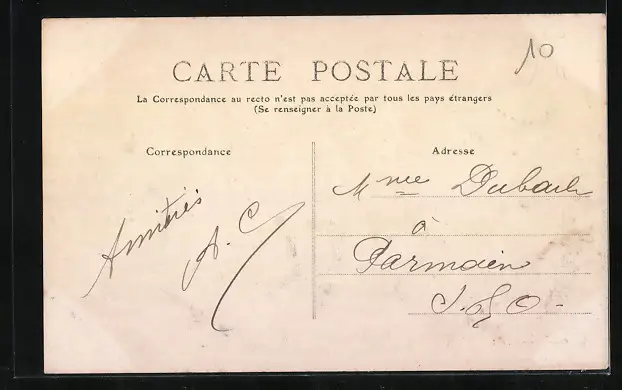 10
CARTE POSTALE
La Correspondance au recto n'est pas acceptée par tous les pays étrangers
(Se renseigner à la Poste)
Correspondance
Adresse
Amitiés
A. C
Mme Dubach
à
Parmain
S. & O.